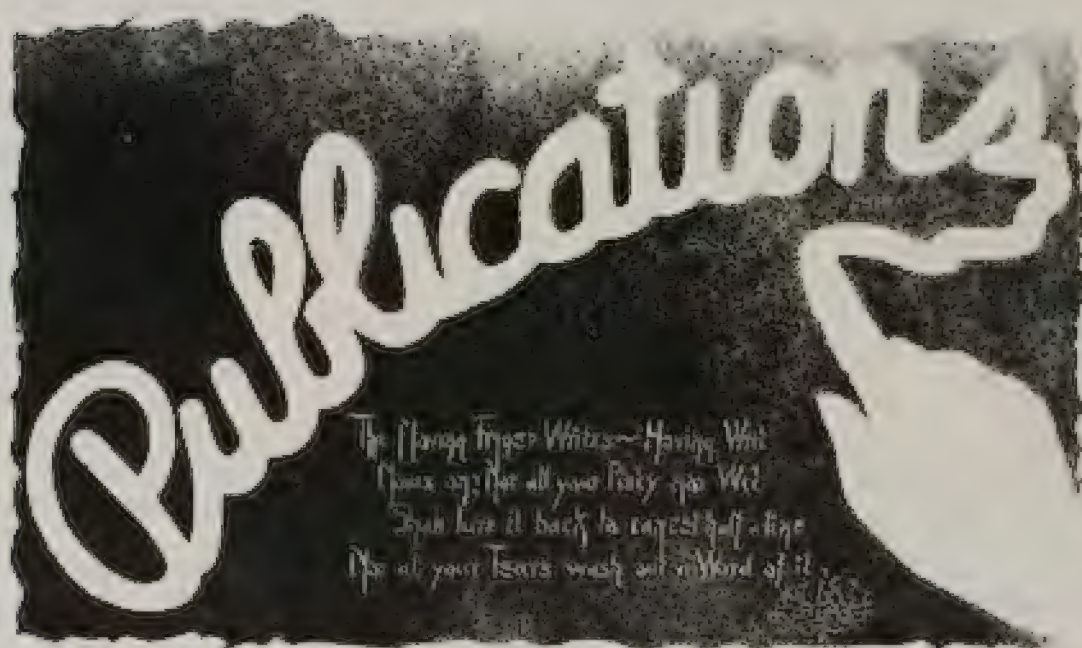 Publications
The Moving Finger Writes Having Writ
Moves on; Nor all your Piety nor Wit
Shall lure it back to cancel half a line
Nor all your Tears wash out a Word of it